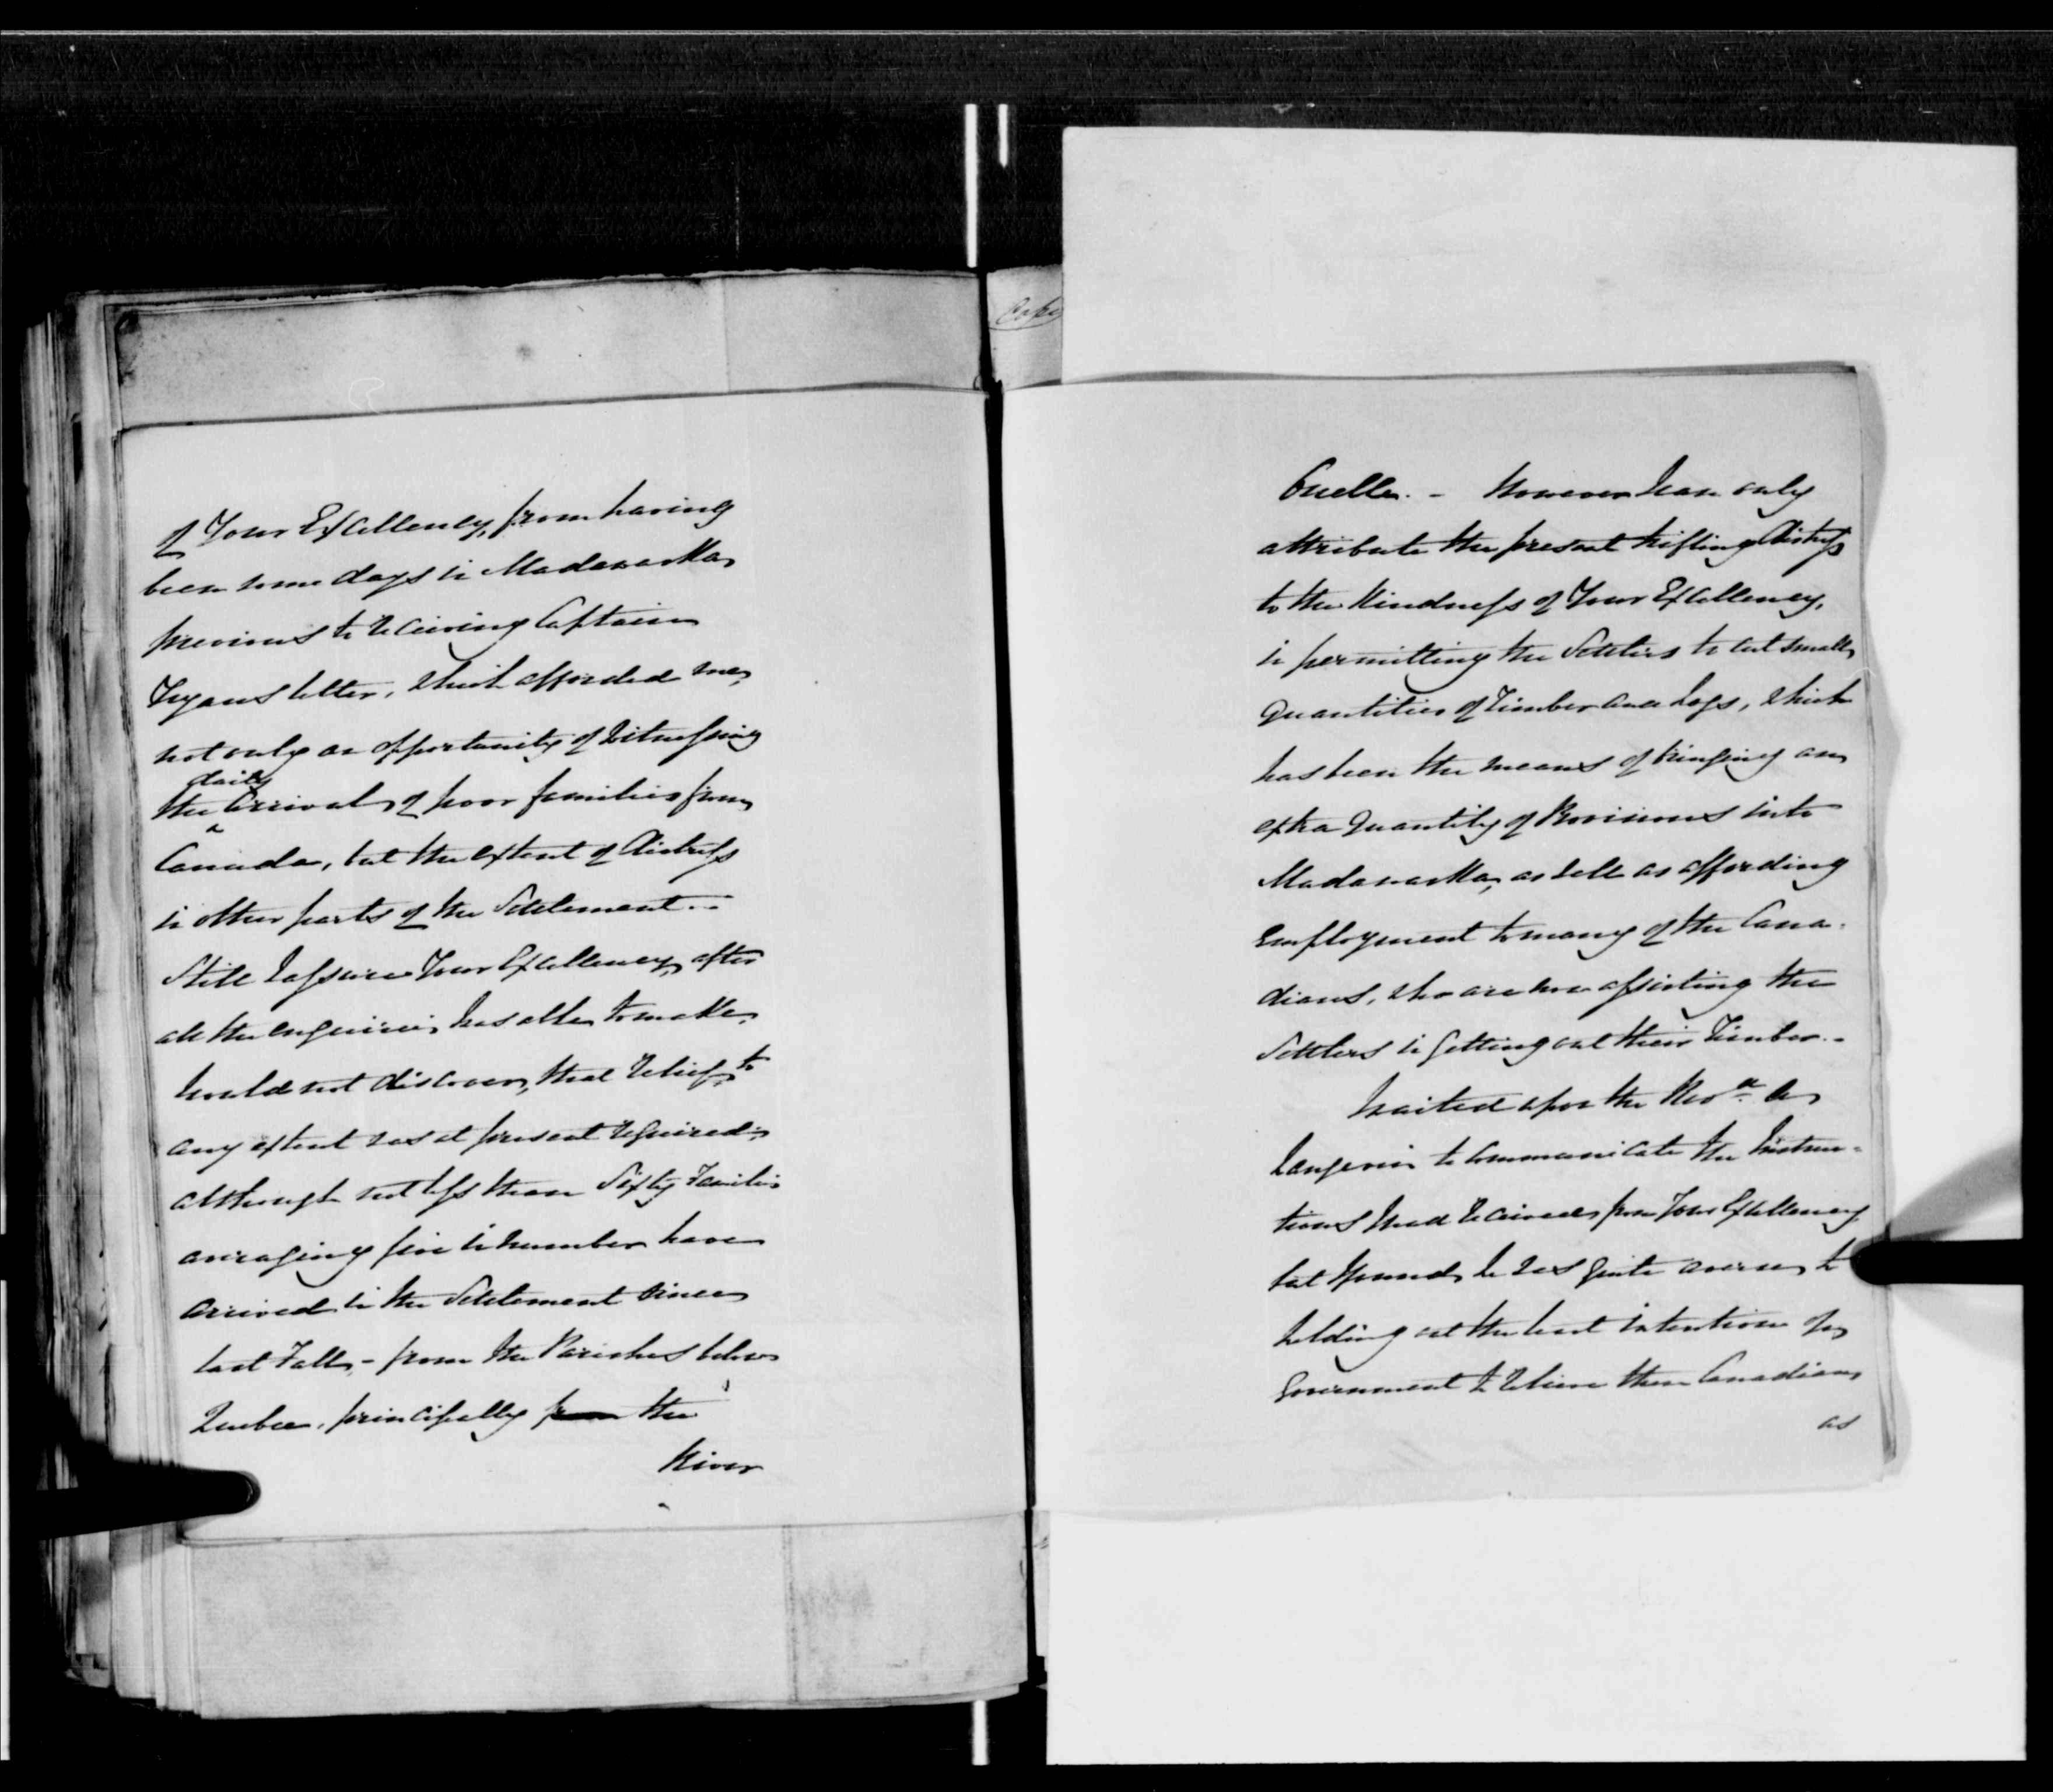 of Your Excellency, from having
been some days in Madawaska
previous to receiving Captain
Tryons letter, which afforded me,
not only an opportunity of witnessing
the daily arrival of poor families from
Canada, but the extent of distress
in other parts of the Settlement. –
Still I assure Your Excellency, after
all the enquiries I was able to make,
I could not discover, that relief, to
any extent was at present required;
although not less than Sixty Families
averaging five in number have
arrived in the Settlement since
last Fall, – from the Parishes below
Quebec, principally from the
River
Copy
Ouelle. – However I can only
attribute the present trifling distress
to the kindness of Your Excellency,
in permitting the Settlers to cut small
Quantities of Timber and Logs, which
has been the means of bringing an
extra Quantity of Provisions into
Madawaska, as well as affording
Employment to many of the Cana-
dians, who are now assisting the
Settlers in getting out their Timber. –
I waited upon the Revd. Mr
Langevin to communicate the Instruc-
tions I had received from Your Excellency
but found he was quite averse to
holding out the least intention of
Government to relieve these Canadians
as